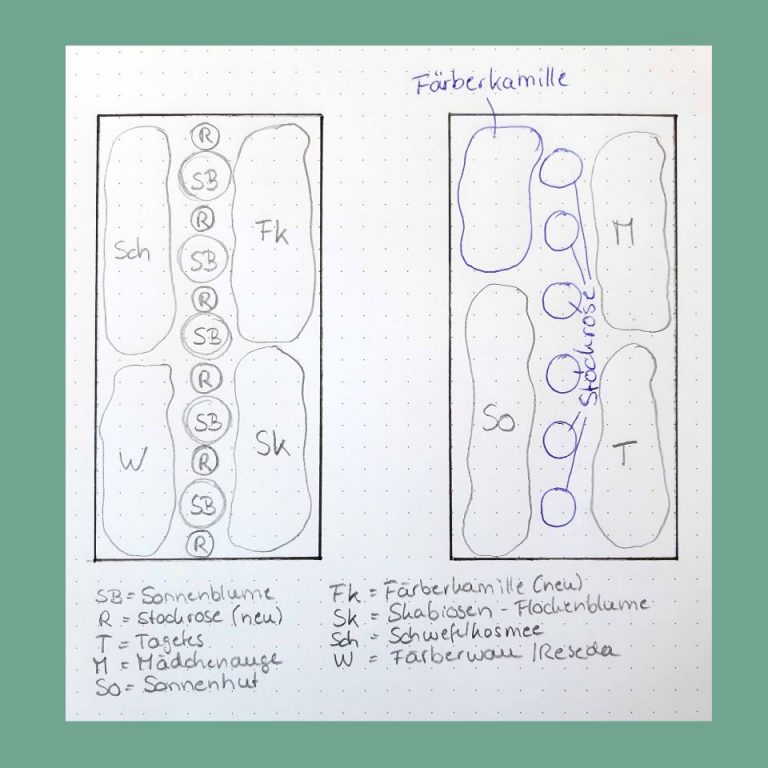 Färberkamille
R
SB
R
SB
R
SB
R
SB
R
SB
R
Sch
Fk
W
Sk
M
So
T
Stockrose
SB = Sonnenblume
R = Stockrose (neu)
T = Tagetes
M = Mädchenauge
So = Sonnenhut
Fk = Färberkamille (neu)
Sk = Skabiosen-Flockenblume
Sch = Schwefelkosmee
W = Färberwau /Reseda